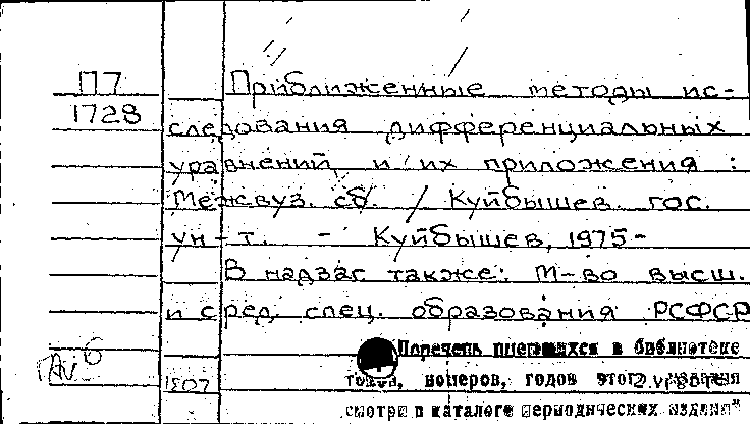 П7
1728
Приближенные методы ис-
следования дифференциальных
уравнений и их приложения :
Межвуз. сб. / Куйбышев. гос.
ун-т. - Куйбышев, 1975-
В надзаг также: М-во высш.
и сред. спец. образования РСФСР
Перечень имеющихся в библиотеке
томов, номеров, годов этого издания
смотри в каталоге периодических изданий"
1507